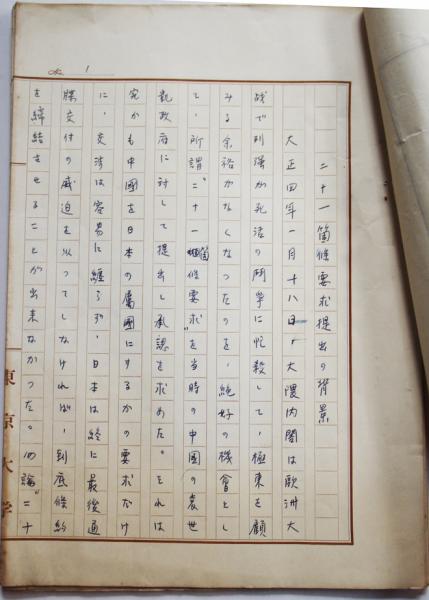 1
二十一箇條要求提出の背景
大正四年一月十八日、大隈內閣は歐洲大
战で列强が死活の鬥爭に忙殺して、極東を顧
みる余裕がなくなったのを、絕好の機會とし
て、所謂“二十一箇條要求”を当時の中国の袁世
凱政府に対して提出し承認を求めた。それは
宛かも中國を日本の屬國にするかの要求だけ
に、交渉は容易に纏らず、日本は終に最後通
牒交付の威迫を以ってしなければ、到底條約
を締結させることが出来なかった。勿論“二十
東京大学